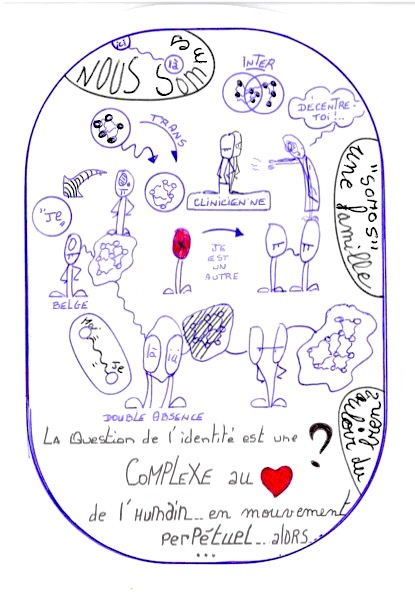 ici
là
NOUS SOMMES
INTER
DÉCENTRE-
TOI !..
TRANS
CLINICIEN·NE
"SOMOS"
une famille
"Je"
BELGE
JE
EST
UN
AUTRE
Moi
Je
là
ici
DOUBLE ABSENCE
autour du
LA Question de l'identité est une ?
COMPLEXE au
de l'Humain... en mouvement
perpétuel... alors...
...